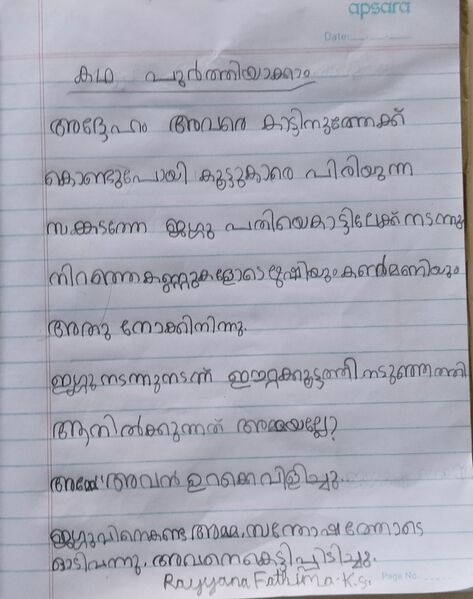 apsara
Date:
കഥ പൂർത്തിയാക്കാം
അദ്ദേഹം അവരെ കാട്ടിനുത്തേക്ക്
കൊണ്ടുപോയി കൂട്ടുകാരെ പിരിയുന്ന
സങ്കടത്തേ ജഗ്ഗു പതിയെകാട്ടിലേക്ക് നടന്നു
നിറഞ്ഞകണ്ണുകളോടെ മുഷിയും കൺമണിയും
അതു നോക്കിനിന്നു.
ജഗ്ഗു നടന്നുനടന്ന് ഈറ്റക്കൂട്ടത്തി നടുത്തെത്തി
ആനിൽക്കുന്നത് അമ്മയല്ലേ?
അമ്മേ' അവൻ ഉറക്കെവിളിച്ചു.
ജഗ്ഗുവിനെകണ്ട അമ്മ, സന്തോഷത്തോടെ
ഓടിവന്നു. അവനെകെട്ടിപ്പിടിച്ചു.
Rayyana Fathima. K.S.
Page No.